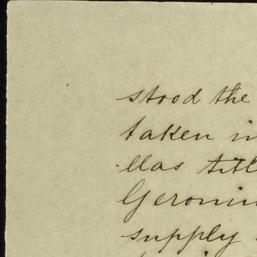 stood the
taken in
llas titl
Geronim
supply